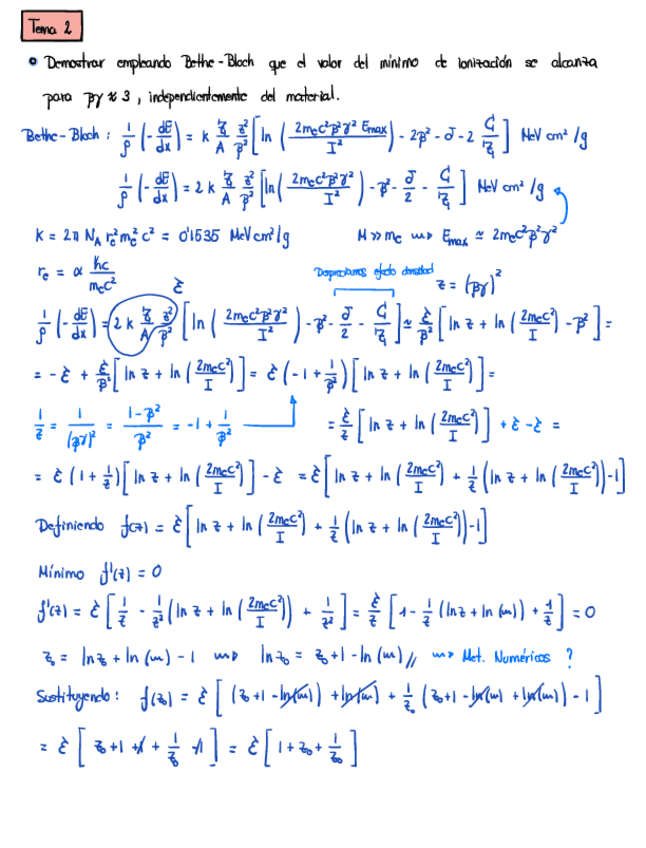 Tema 2
• Demostrar empleando Bethe-Bloch que el valor del mínimo de ionización se alcanza
para βγ ≈ 3, independientemente del material.
Bethe-Bloch: 1/ρ (-dE/dx) = k Z/A z²/β² [ln (2mec²β²γ² Emax / I²) - 2β² - δ - 2 C/Z] MeV cm²/g
1/ρ (-dE/dx) = 2k Z/A z²/β² [ln (2mec²β²γ² / I²) - β² - δ/2 - C/Z] MeV cm²/g
K = 2π NA re² me² c² = 0'1535 MeV cm²/g M >> me ⟿ Emax ≃ 2mec²β²γ²
re = α ħc/mec² Ɛ Despreciamos efecto densidad z = (βγ)²
1/ρ (-dE/dx) = 2k Z/A z²/β² [ln (2mec²β²γ² / I²) - β² - δ/2 - C/Z] ≃ Ɛ/β² [ln z + ln (2mec²/I) - β²] =
= -Ɛ + Ɛ/β² [ln z + ln (2mec²/I)] = Ɛ (-1 + 1/β²) [ln z + ln (2mec²/I)] =
1/z = 1/(βγ)² = (1-β²)/β² = -1 + 1/β² = Ɛ/z [ln z + ln (2mec²/I)] + Ɛ - Ɛ =
= Ɛ (1 + 1/z) [ln z + ln (2mec²/I)] - Ɛ = Ɛ [ln z + ln (2mec²/I) + 1/z (ln z + ln (2mec²/I)) - 1]
Definiendo f(z) = Ɛ [ln z + ln (2mec²/I) + 1/z (ln z + ln (2mec²/I)) - 1]
Mínimo f'(z) = 0
f'(z) = Ɛ [1/z - 1/z² (ln z + ln (2mec²/I)) + 1/z²] = Ɛ/z [1 - 1/z (ln z + ln (m)) + 1/z] = 0
z₀ = ln z₀ + ln (m) - 1 ⟿ ln z₀ = z₀ + 1 - ln (m) // ⟿ Met. Numéricos ?
Sustituyendo: f(z₀) = Ɛ [(z₀ + 1 - ln(m)) + ln(m) + 1/z₀ (z₀ + 1 - ln(m) + ln(m)) - 1]
= Ɛ [z₀ + 1 + 1 + 1/z₀ - 1] = Ɛ [1 + z₀ + 1/z₀]